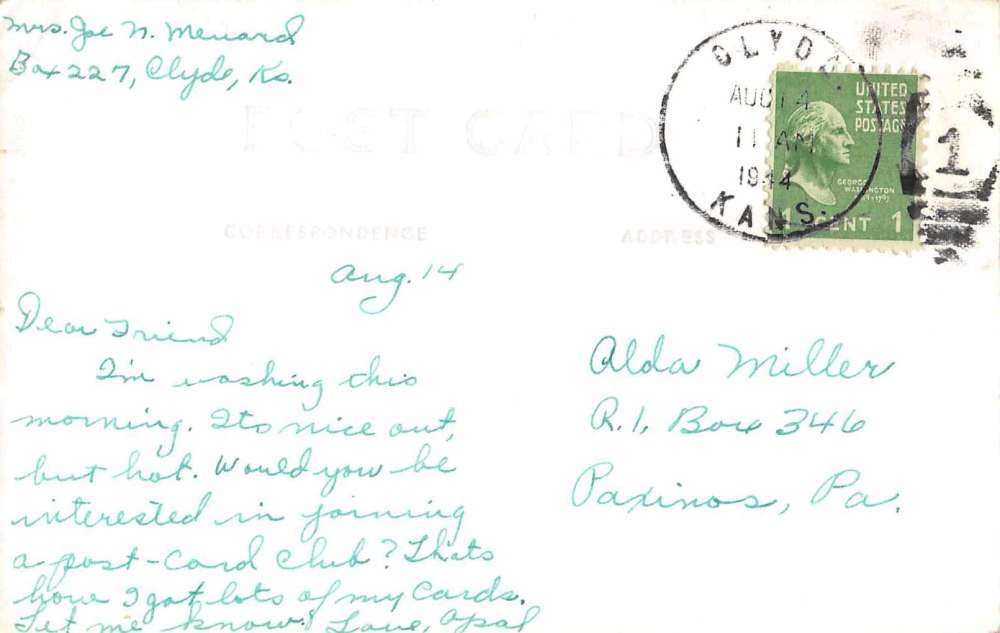 Mrs. Joe N. Menard
Box 227, Clyde, Ks.
POST CARD
CLYDE
AUG 14
11 AM
1944
KANS.
UNITED
STATES
POSTAGE
GEORGE
WASHINGTON
1 CENT 1
1
CORRESPONDENCE
ADDRESS
Aug. 14
Dear Friend
I'm washing this
morning. Its nice out,
but hot. Would you be
interested in joining
a post-card club? Thats
how I got lots of my cards.
Let me know. Love, Opal
Alda Miller
R.1, Box 346
Paxinos, Pa.